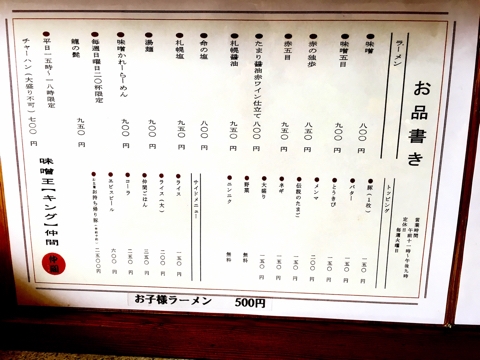 お品書き
営業時間
午前十一時〜午後九時
定休日 毎週火曜日
ラーメン
味噌 八〇〇円
味噌五目 九〇〇円
赤の独歩 八五〇円
赤五目 九五〇円
たまり醤油赤ワイン仕立て 八〇〇円
札幌醤油 九五〇円
命の塩 八〇〇円
札幌塩 九五〇円
湯麺 九五〇円
味噌かれーらーめん 九〇〇円
毎週日曜日二〇杯限定
龍の髭 九五〇円
平日一五時〜一八時限定
チャーハン(大盛り不可) 七〇〇円
トッピング
豚(1枚) 一五〇円
バター 一五〇円
とうきび 一五〇円
メンマ 二〇〇円
伝説のたまご 一五〇円
ネギ 一五〇円
大盛り 一五〇円
野菜 無料
ニンニク 無料
サイドメニュー
ライス 一五〇円
ライス(大) 二〇〇円
仲間ごはん 三五〇円
コーラ 二五〇円
ヱビスビール 六〇〇円
お持ち帰り豚 二五〇〇円
味噌王【キング】仲間
お子様ラーメン 500円